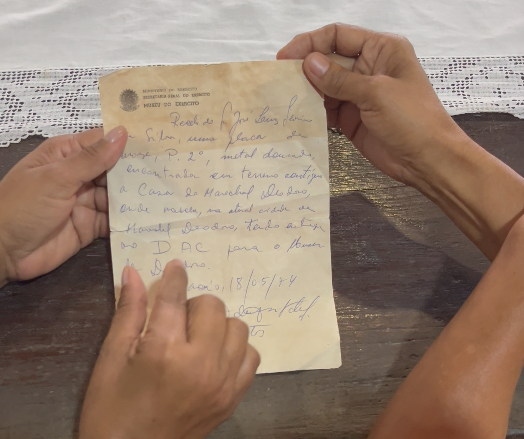 MINISTÉRIO DO EXÉRCITO
SECRETARIA GERAL DO EXÉRCITO
MUSEU DO EXÉRCITO
Recebi do José
Silva, uma placa de
P. 2º, metal dourado,
encontrada em terreno contíguo
a Casa do Marechal Deodoro,
onde nasceu, na atual cidade de
Marechal Deodoro, tendo entregue
ao DAC para o Museu
de Deodoro.
18/05/84